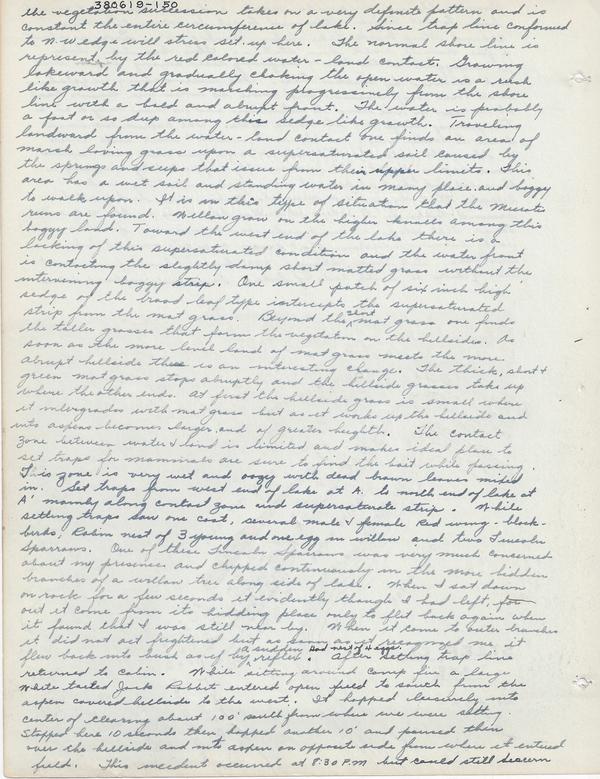 380619-150
the vegetation succession takes on a very definite pattern and is
constant the entire circumference of lake. Since trap line conformed
to N-W edge will stress set up here. The normal shore line is
represent by the red colored water-land contact. Growing
lakeward and gradually choking the open water is a rush
like growth that is marching progressively from the shore
line with a and abrupt front. The water is probably
a foot or so deep among this sedge like growth. Traveling
landward from the water-land contact one finds an area of
marsh loving grass upon a supersaturated soil caused by
the springs and seeps that issue from their upper limits. This
area has a wet soil and standing water in many place and boggy
to walk upon. It is in this type of situation that the Microtus
runs are found. Willow grow on the higher knolls among this
boggy land. Toward the west end of the lake there is a
lacking of this supersaturated condition and the water front
is contacting the slightly damp short matted grass without the
intervening boggy strip. One small patch of six inch high
sedge of the broad leaf type intercepts the supersaturated
strip from the mat grass. Beyond the short mat grass one finds
the taller grasses that form the vegetation on the hillsides. As
soon as the more level land of mat grass meets the more
abrupt hillside there is an interesting change. The thick, short &
green mat grass stops abruptly and the hillside grasses take up
where the other ends. At first the hillside grass is small where
it intergrades with mat grass but as it works up the hillside and
into aspens becomes larger and of greater heighth. The contact
zone between water & land is limited and makes ideal place to
set traps for mammals are sure to find the bait while passing.
This zone is very wet and oozy with dead brown leaves mixed
in. Set traps from west end of lake at A. to north end of lake at
A' mainly along contact zone and supersaturate strip. While
setting traps saw one coot, several male & female Red wing-black-
birds, Robin nest of 3 young and one egg in willow and two Lincoln
Sparrows. One of these Lincoln Sparrows was very much concerned
about my presence and chipped continuously in the more hidden
branches of a willow tree along side of lake. When I sat down
on rock for a few seconds it evidently though I had left, for
out it come from its hidding place only to flit back again when
it found that I was still near by. When it come to outer branches
it did not act frightened but as soon as it recognized me it
flew back into bush as if by a sudden reflex. Had nest of 4 eggs. After setting trap line
returned to cabin. While sitting around camp fire a large
White tailed Jack Rabbit entered open field to south from the
aspen covered hillside to the west. It hopped leisurely into
center of clearing about 100' south from where we were sitting
Stopped here 10 seconds then hopped another 10' and paused then
over the hillside and into aspen on opposite side from where it entered
field. This incident occurred at 8:30 P.M but could still discern